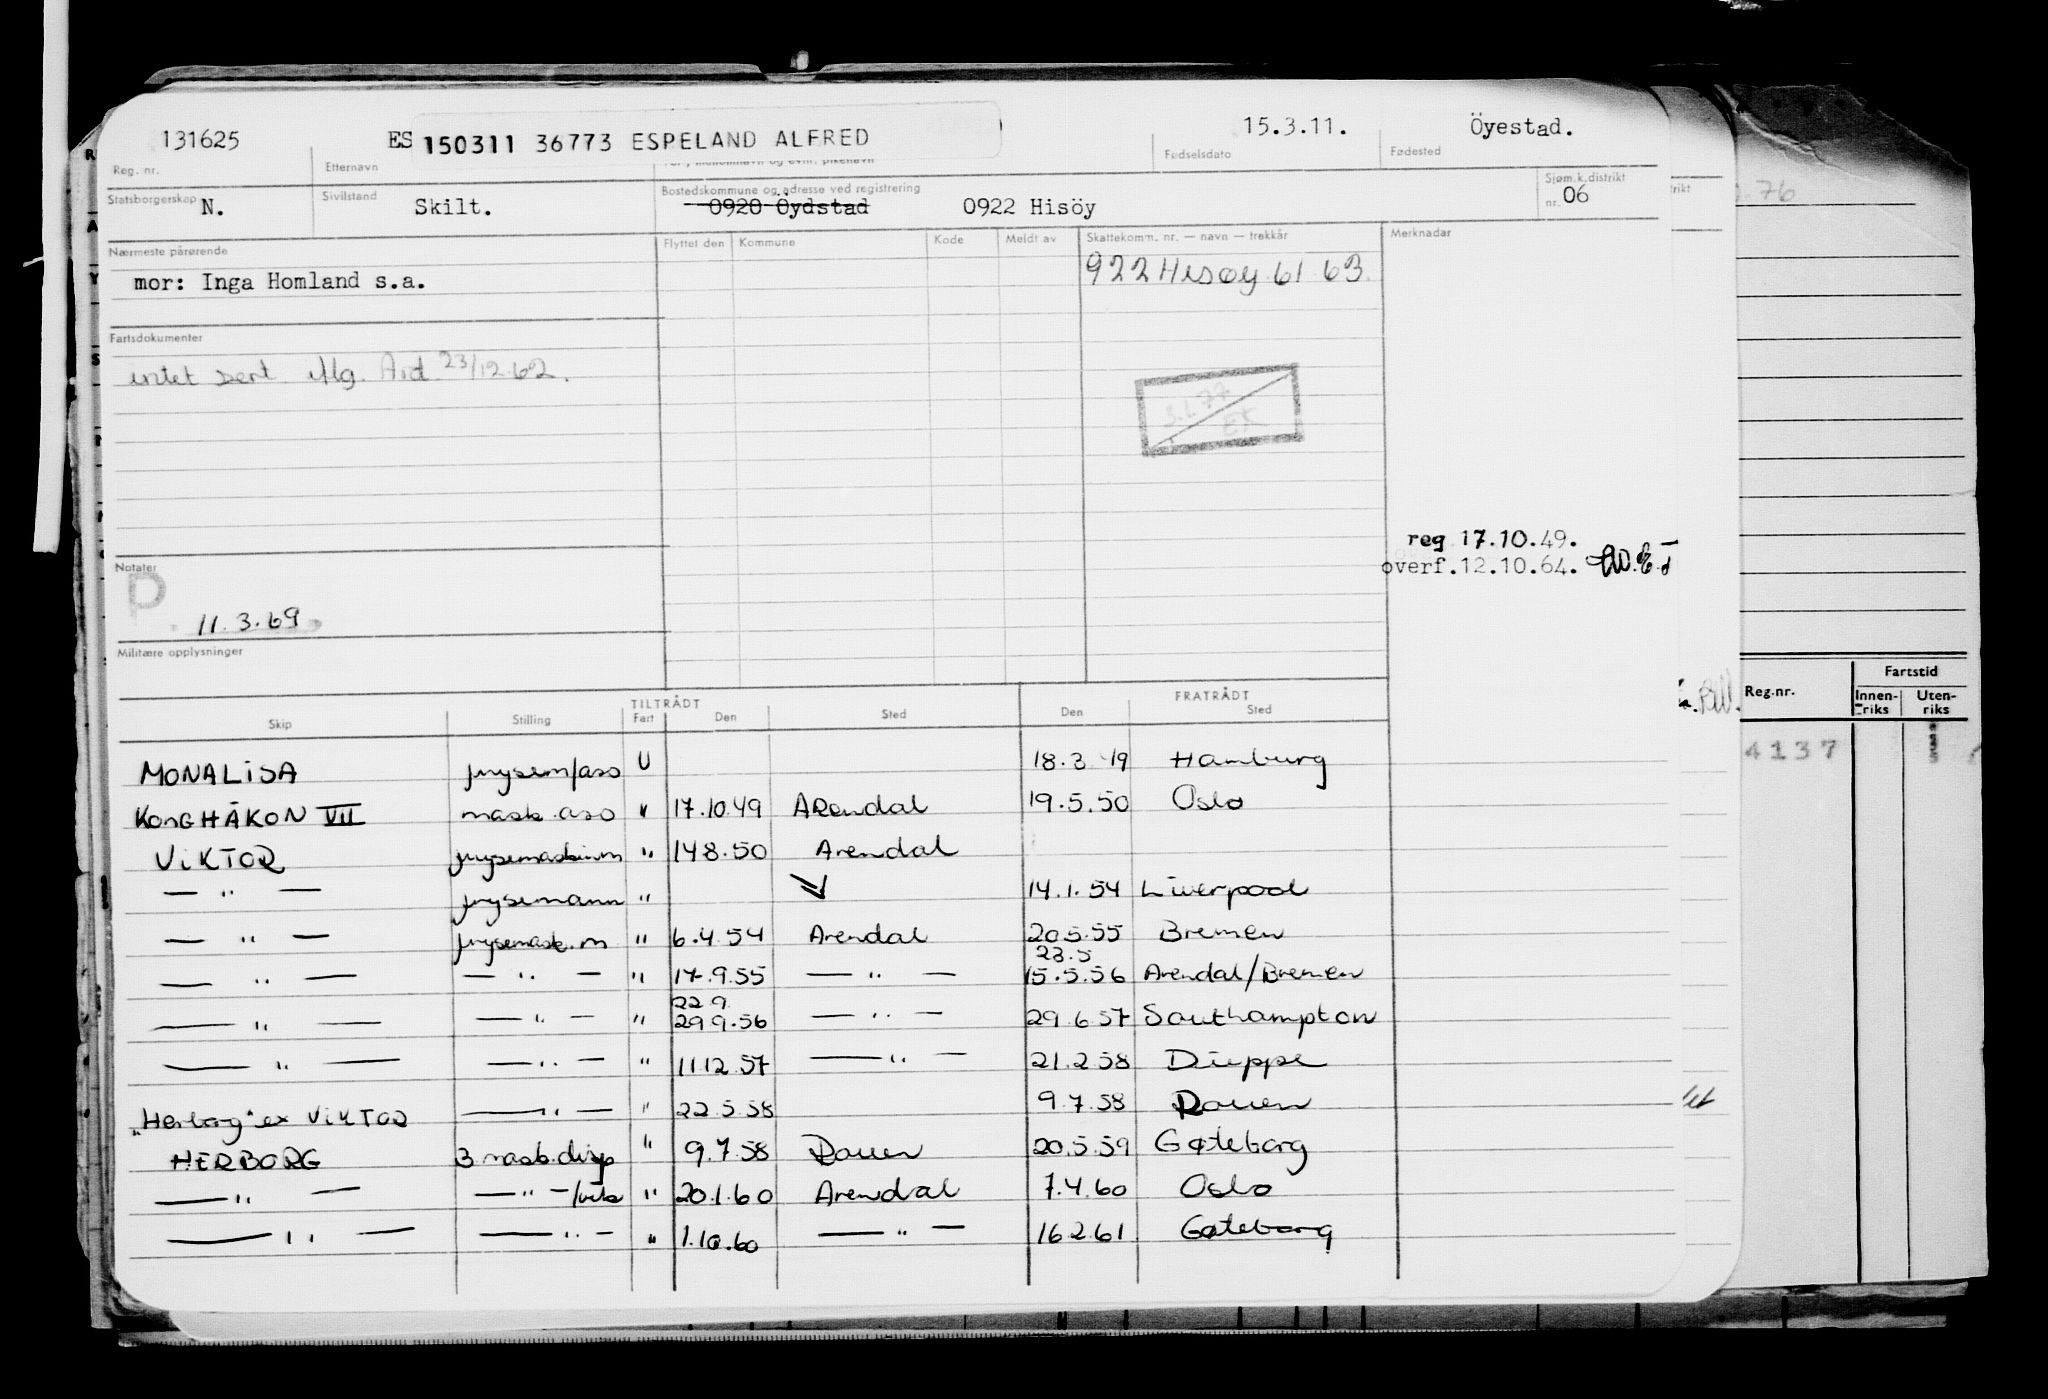 131625 ES 150311 36773 ESPELAND ALFRED 15.3.11. Öyestad.
Reg. nr. Etternavn Fødselsdato Fødested
Statsborgerskap N. Sivilstand Skilt. Bostedskommune og adresse ved registrering 0920 Öydstad 0922 Hisöy Sjøm.k.distrikt nr. 06
Nærmeste pårørende Flyttet den Kommune Kode Meldt av Skattekomm. nr. — navn — trekkår Merknader
mor: Inga Homland s.a. 922 Hisøy 61 63
Fartsdokumenter
intet sert 23/12.62.
3.1.77
EK
reg 17.10.49.
overf.12.10.64.
Notater
P
11.3.69
Militære opplysninger
TILTRÅDT FRATRÅDT
Skip Stilling Fart Den Sted Den Sted
MONALISA U 18.3.49 Hamburg
KONG HÅKON VII mask. ass " 17.10.49 Arendal 19.5.50 Oslo
VIKTOR " 14.8.50 Arendal
— " — frysemann " 14.1.54 Liverpool
— " — frysemask.m " 6.4.54 Arendal 20.5.55 Bremen
23.5
— " — — " — " 17.9.55 — " — 15.5.56 Arendal/Bremen
22.9
— " — — " — " 29.9.56 — " — 29.6.57 Southampton
— " — — " — " 11.12.57 — " — 21.2.58 Dieppe
"Herborg" ex VIKTOR — " — " 22.5.58 9.7.58 Rouen
HERBORG 3 mask. disp " 9.7.58 Rouen 20.5.59 Gøteborg
— " — — " — " 20.1.60 Arendal 7.4.60 Oslo
— " — — " — " 1.10.60 — " — 16.2.61 Gøteborg
76
Reg.nr. Fartstid
Innen-riks Uten-riks
4137